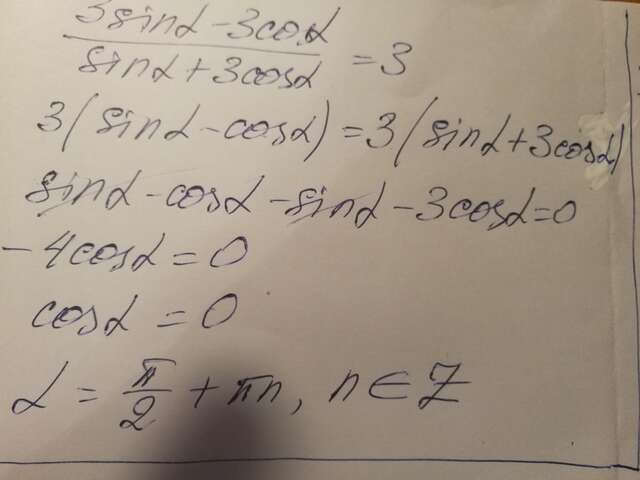 3sinα - 3cosα
sinα + 3cosα = 3
3(sinα - cosα) = 3(sinα + 3cosα)
sinα - cosα - sinα - 3cosα = 0
- 4cosα = 0
cosα = 0
α = π/2 + πn, n ∈ Z